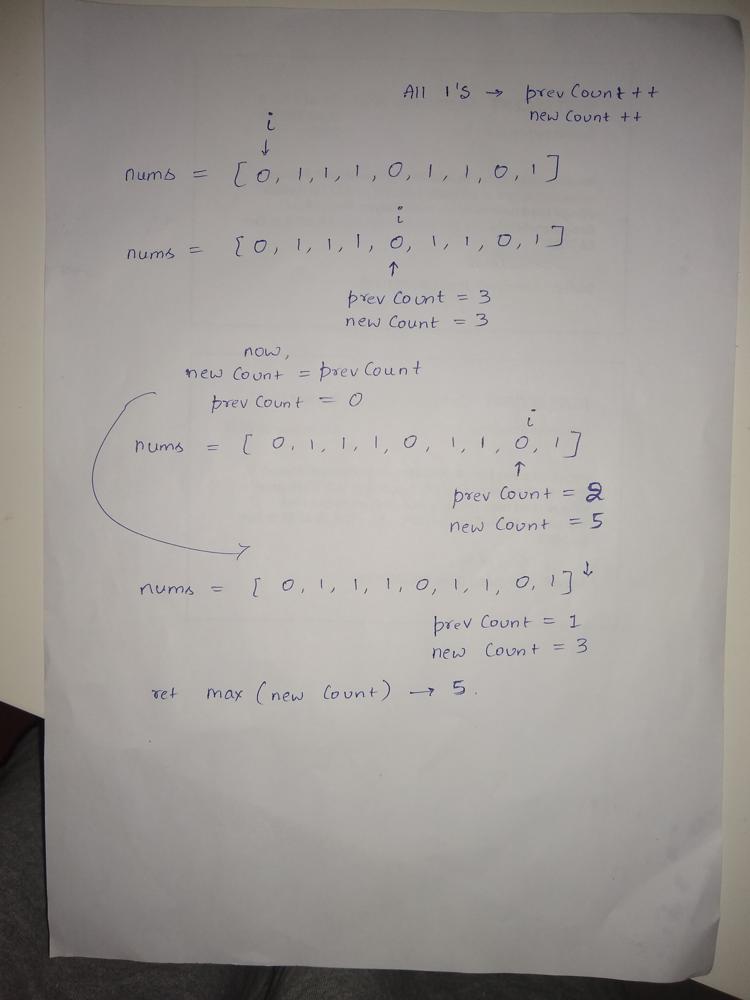 All 1's → prev Count ++
new Count ++
i
↓
nums = [0, 1, 1, 1, 0, 1, 1, 0, 1]
i
nums = [0, 1, 1, 1, 0, 1, 1, 0, 1]
↑
prev Count = 3
new Count = 3
now,
new Count = prev Count
prev Count = 0
i
nums = [0, 1, 1, 1, 0, 1, 1, 0, 1]
↑
prev Count = 2
new Count = 5
nums = [0, 1, 1, 1, 0, 1, 1, 0, 1] ↓
prev Count = 1
new Count = 3
ret max (new Count) → 5.